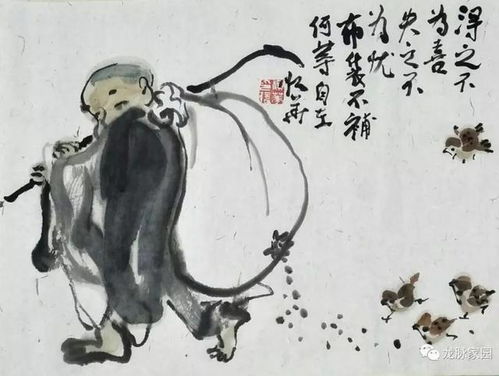 得之不
为喜
失之不
为忧
布袋不補
何等自在
龙脉家园